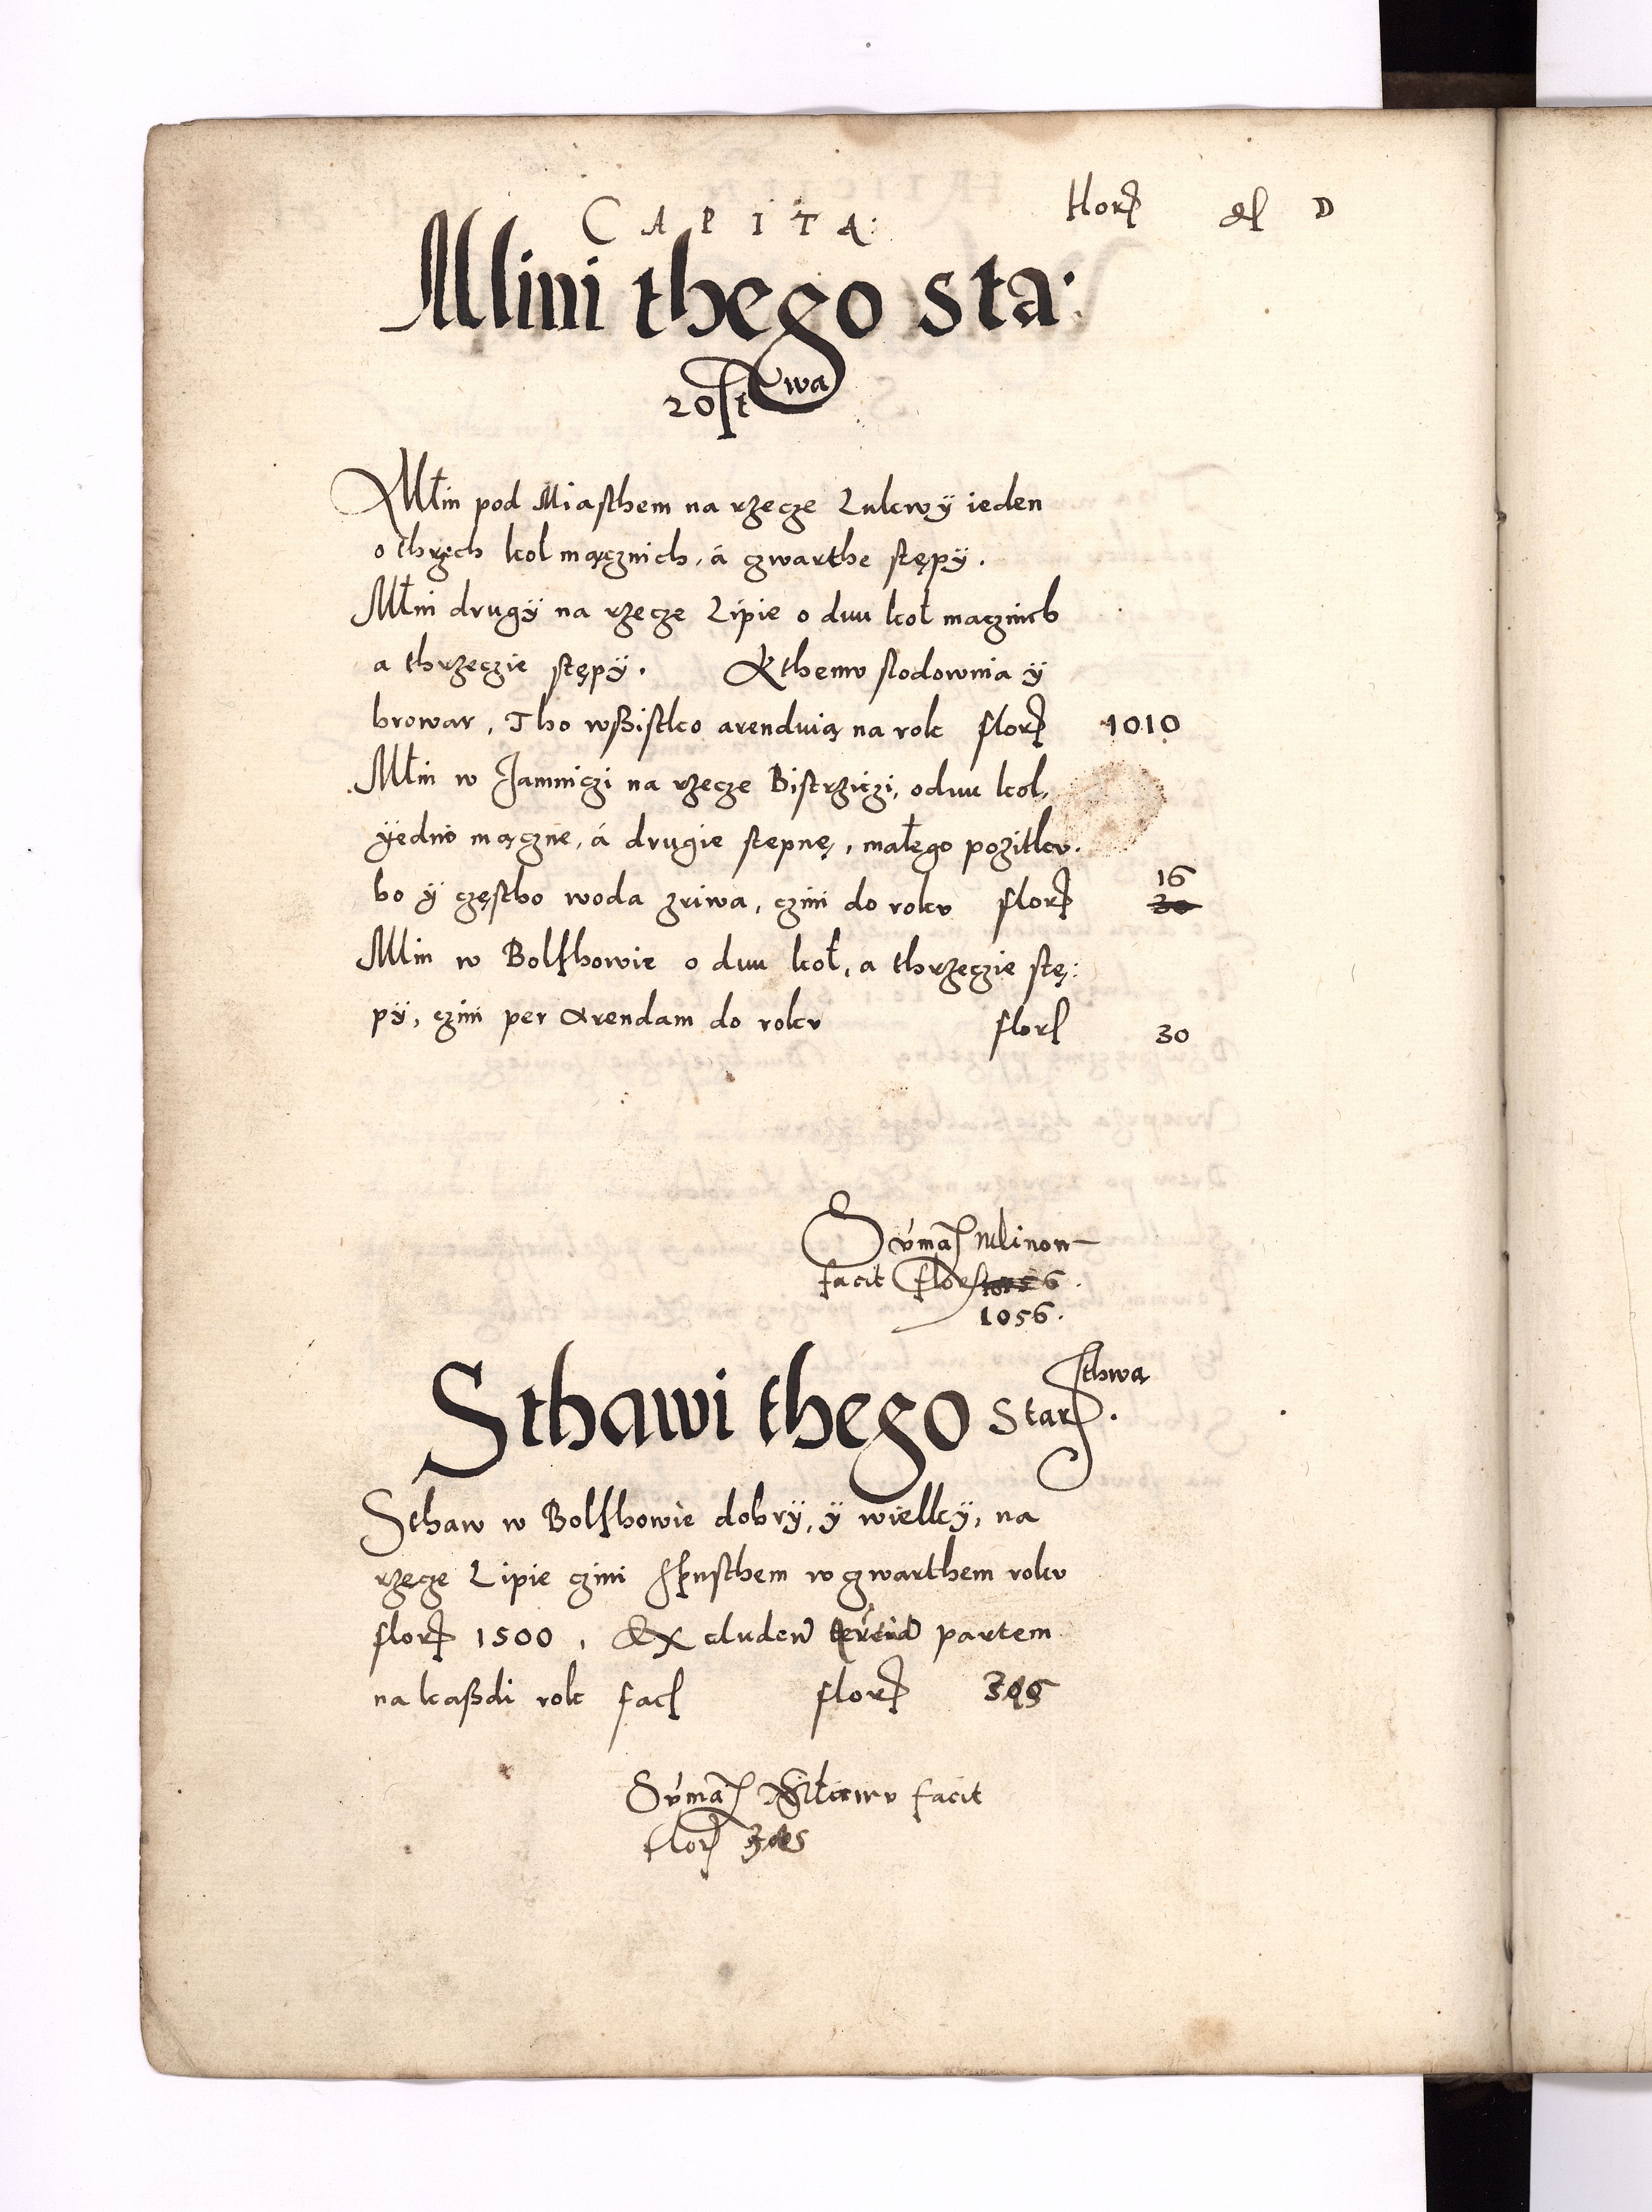 CAPITA: flor gl D
Mlini thego sta:
rostwa
Młin pod Miasthem na rzecze Lukwÿ ieden
o thrzech kol mącznich, á czwarthe stępÿ.
Młin drugÿ na rzecze Lipie o dwu koł mącznich
a thrzeczie stępÿ. K themu slodownia ÿ
browar, Tho wßistko arenduią na rok flor 1010
Młin w Jamniczi na rzecze Bistrziczi, o dwu kol,
ÿedno mączne, á drugie stepnę, małego pozitku.
bo ÿ częstho woda zriwa, czini do roku flor 16
30
Mlin w Bolshowie o dwu koł, a thrzeczie stę:
pÿ, czini per Arendam do roku flor 30
Sumа Mlinow
facit flor 1056.
1056.
Sthawi thego Starsthwa.
Sthaw w Bolshowie dobrÿ, ÿ wielkÿ, na
rzecze Lipie czini Spusthem w czwarthem roku
flor 1500, Excluden tercia partem
na kaßdi rok fac flor
Suma Stawu facit
flor